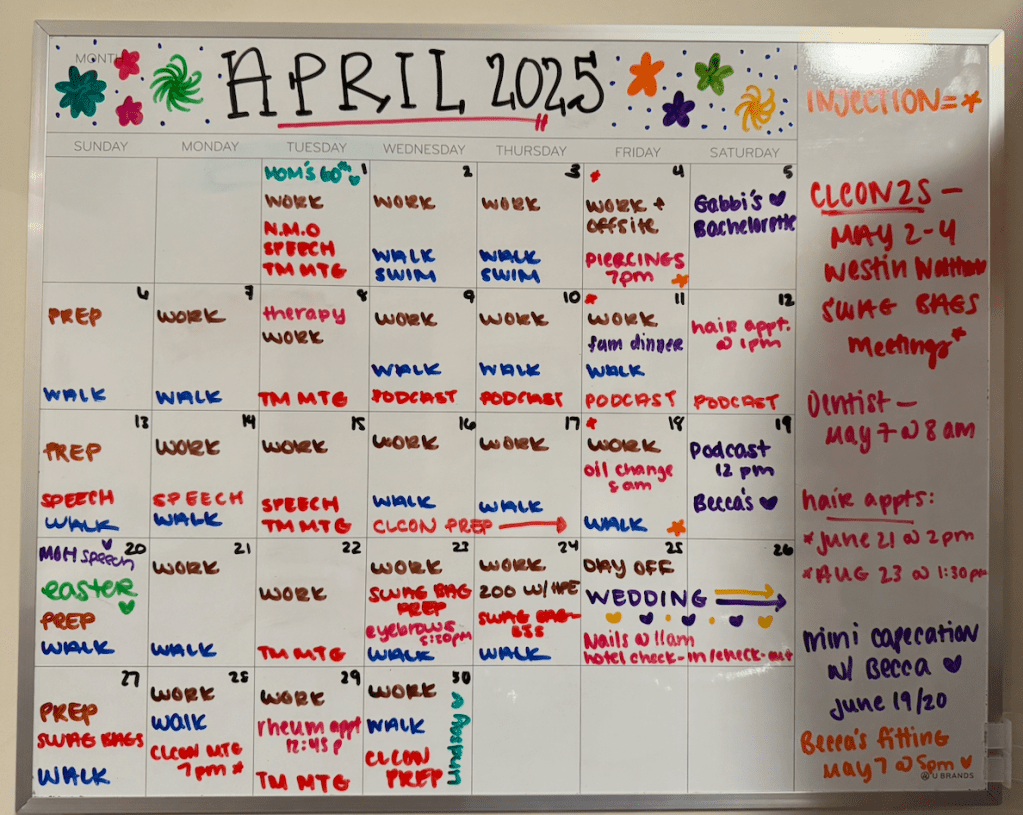 MONTH
APRIL 2025
SUNDAY MONDAY TUESDAY WEDNESDAY THURSDAY FRIDAY SATURDAY
MOM'S 60th 1
WORK
N.M.O
SPEECH
TM MTG
2
WORK
WALK
SWIM
3
WORK
WALK
SWIM
* 4
WORK +
OFFSITE
PIERCINGS
7pm *
5
Gabbi's ♥
Bachelorette
6
PREP
WALK
7
WORK
WALK
8
therapy
WORK
TM MTG
9
WORK
WALK
PODCAST
10
WORK
WALK
PODCAST
* 11
WORK
fam dinner
WALK
PODCAST
12
hair appt.
@ 1pm
PODCAST
13
PREP
SPEECH
WALK
14
WORK
SPEECH
WALK
15
WORK
SPEECH
TM MTG
16
WORK
WALK
CLCON PREP →
17
WORK
WALK
* 18
WORK
oil change
8am
WALK *
19
Podcast
12 pm
Becca's ♥
MOH speech ♥ 20
easter ♥
PREP
WALK
21
WORK
WALK
22
WORK
TM MTG
23
WORK
SWAG BAG
PREP
eyebrows
5:20pm
WALK
24
WORK
200 W/
SWAG BAG-
WALK
25
DAY OFF
WEDDING →
Nails @ 11am
hotel check-in/check-out
26
27
PREP
SWAG BAGS
WALK
28
WORK
WALK
CLCON MTG
7pm *
29
WORK
rheum appt
12:45 p
TM MTG
30
WORK
WALK
CLCON
PREP
INJECTION = *
CLCON25 -
MAY 2-4
Westin
SWAG BAGS
Meetings*
Dentist -
May 7 @ 8 am
hair appts:
*June 21 @ 2pm
*AUG 23 @ 1:30pm
mini capecation
w/ Becca ♥
June 19/20
Becca's fitting
May 7 @ 5pm ♥
U BRANDS